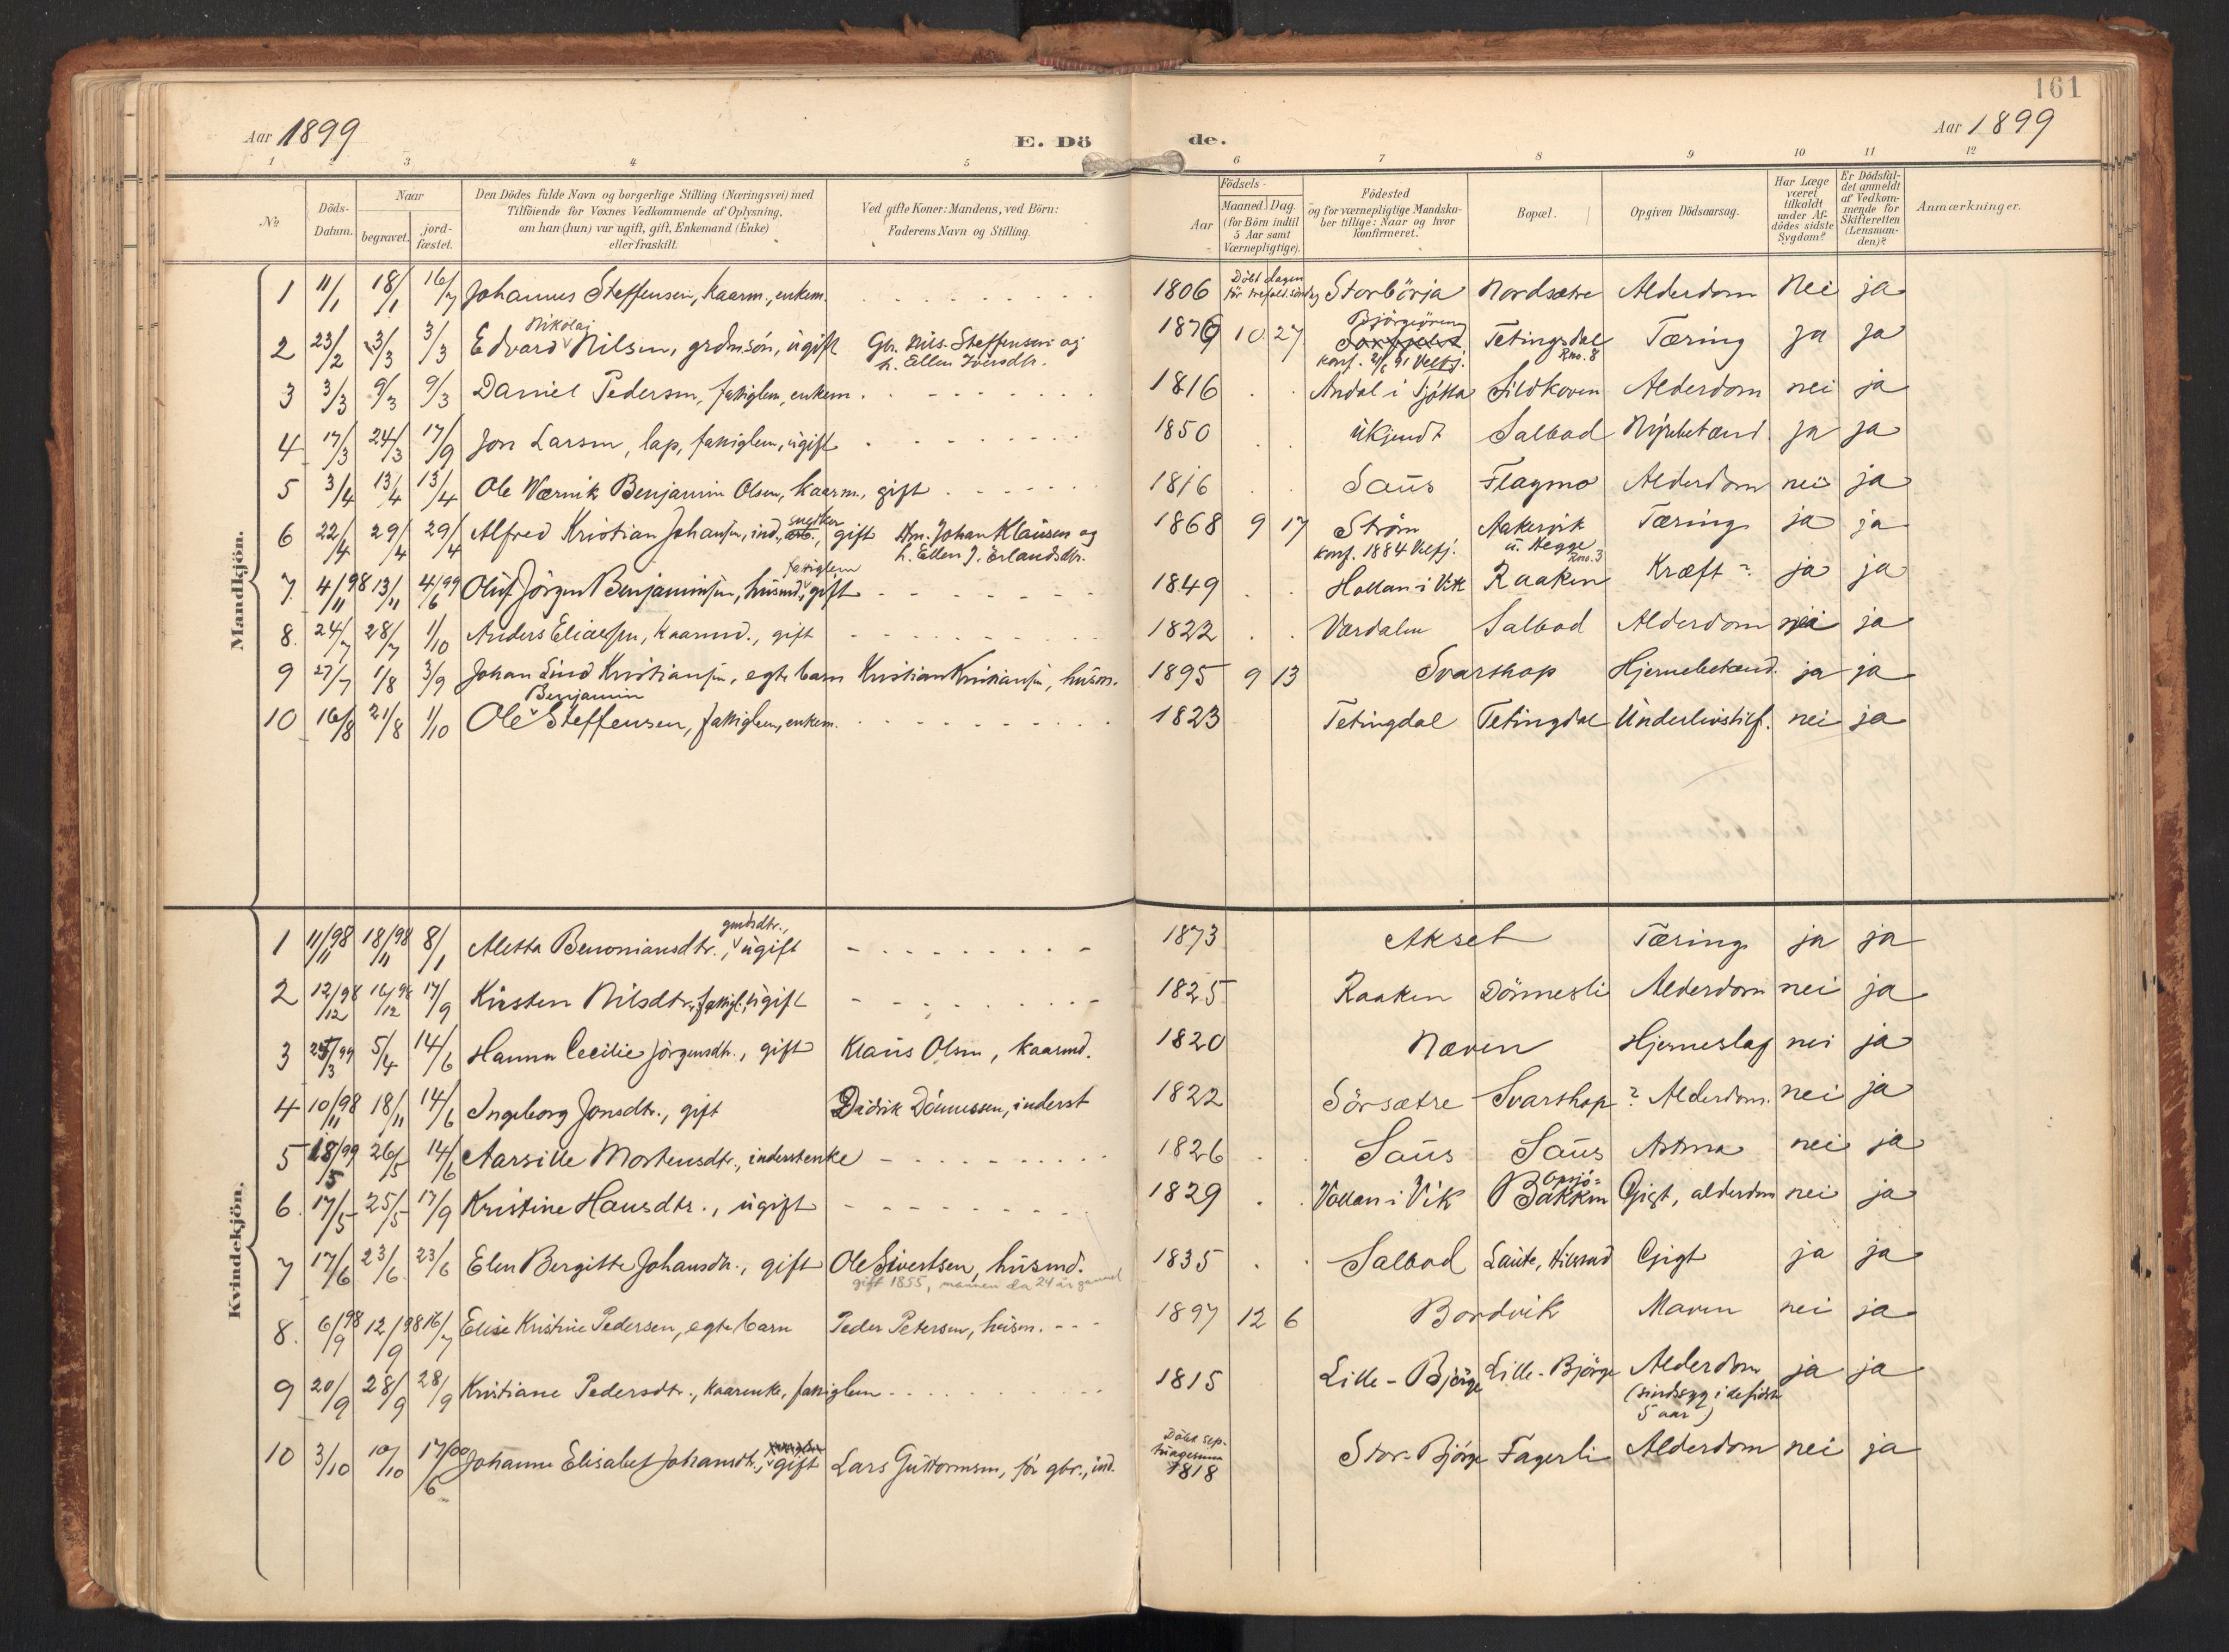 161
Aar 1899
E. Dö
de.
Aar 1899
1 2 3 4 5
6 7 8 9 10 11 12
No
Döds-
Datum.
Naar
begravet.
jord-
fæstet.
Den Dödes fulde Navn og borgerlige Stilling (Næringsvei) med
Tilföiende for Voxnes Vedkommende af Oplysning,
om han (hun) var ugift, gift, Enkemand (Enke)
eller fraskilt.
Ved gifte Koner: Mandens, ved Börn:
Faderens Navn og Stilling.
Födsels-
Aar
Maaned. Dag.
(for Börn indtil
5 Aar samt
Værnepligtige).
Födested
og for værnepligtige Mandska-
ber tillige: Naar og hvor
konfirmeret.
Bopæl.
Opgiven Dödsaarsag.
Har Læge
været
tilkaldt
under Af-
dödes sidste
Sygdom?
Er Dödsfal-
det anmeldt
af Vedkom-
mende for
Skifteretten
(Lensman-
den)?
Anmærkninger.
Mandkjön.
1 11/1 18/1 16/7 Johannes Steffensen, kaarm., enkem. 1806 Döbt dagen för trefold. söndag Storbörja Nordsætre Alderdom Nei ja
Nikolaj
2 23/2 3/3 3/3 Edvard Nilsen, grdmsön, ugift Gbr. Nils Steffensen og 1876 10 27 Björgeören Tetingsdal Tæring ja ja
h. Ellen Iversdtr. konf. 91 Vefsj. Rno. 8
3 3/3 9/3 9/3 Daniel Pedersen, fattiglem, enkem. 1816 Andal i Tjötta Sildkoven Alderdom nei ja
4 17/3 24/3 17/9 Jon Larsen, lap, fattiglem, ugift 1850 Ukjendt Salbod Nyrebetænd. ja ja
5 3/4 13/4 13/4 Ole Værnik Benjamin Olsen, kaarm., gift 1816 Saus Flagmo Alderdom nei ja
snedker
6 22/4 29/4 29/4 Alfred Kristian Johansen, ind., gift Hm. Johan Klausen og 1868 9 17 Ström Aakervik Tæring ja ja
h. Ellen J. Erlandsdtr. konf. 1884 Vefsj. u. Hegge Rno. 3
fattiglem
7. 4/11 98 13/11 4/6 99 Oluf Jörgen Benjaminsen, husmd., gift 1849 Hollan i Vik Raaken Kræft? ja ja
8. 24/7 28/7 1/10 Anders Eliassen, kaarmd., gift 1822 Værdalen Salbod Alderdom nei ja
9 27/7 1/8 3/9 Johan Lind Kristiansen, egte barn Kristian Kristiansen, husm. 1895 9 13 Svarthop Hjernebetænd. ja ja
Benjamin
10 16/8 21/8 1/10 Ole Steffensen, fattiglem, enkem. 1823 Tetingdal Tetingdal Underlivstilf. nei ja
Kvindekjön.
gmdsdtr.,
1 11/11 98 18/11 98 8/1 Aletta Benoniansdtr., ugift 1873 Akset Tæring ja ja
2 12/12 98 16/12 98 17/9 Kirsten Nilsdtr., fattigl., ugift 1825 Raaken Dönnesli Alderdom nei ja
3 25/3 99 5/4 14/6 Hanna Cecilie Jörgensdtr., gift Klaus Olsen, kaarmd. 1820 Næven Hjerneslag nei ja
4 10/11 98 18/11 14/6 Ingeborg Jonsdtr., gift Didrik Dönnessen, inderst 1822 Sörsætre Svarthop ? Alderdom. nei ja
5 18/5 99 26/5 14/6 Aarsille Mortensdtr., inderstenke 1826 Saus Saus Astma nei ja
6. 17/5 25/5 17/9 Kristine Hansdtr., ugift 1829 Vollan i Vik Opsjö-Bakken Gigt, alderdom nei ja
7 17/6 23/6 23/6 Elen Bergitte Johansdtr., gift Ole Sivertsen, husmd. 1835 Salbod Laute, Hilstad Gigt ja ja
gift 1855, mannen da 24 år gammel
8. 6/9 98 12/9 98 16/7 Elise Kristine Pedersen, egte barn Peder Petersen, husm. 1897 12 6 Bordvik Maven nei ja
9 20/9 28/9 28/9 Kristiane Pedersdtr., kaarenke, fattiglem 1815 Lille-Björge Lille-Björge Alderdom ja ja
(sindssyg i de sidste
5 aar)
10 3/10 10/10 17/6 00 Johanne Elisabet Johansdtr., gift Lars Guttormsen, för gbr., ind. Döbt septuagesima 1818 Stor-Björge Fagerli Alderdom nei ja